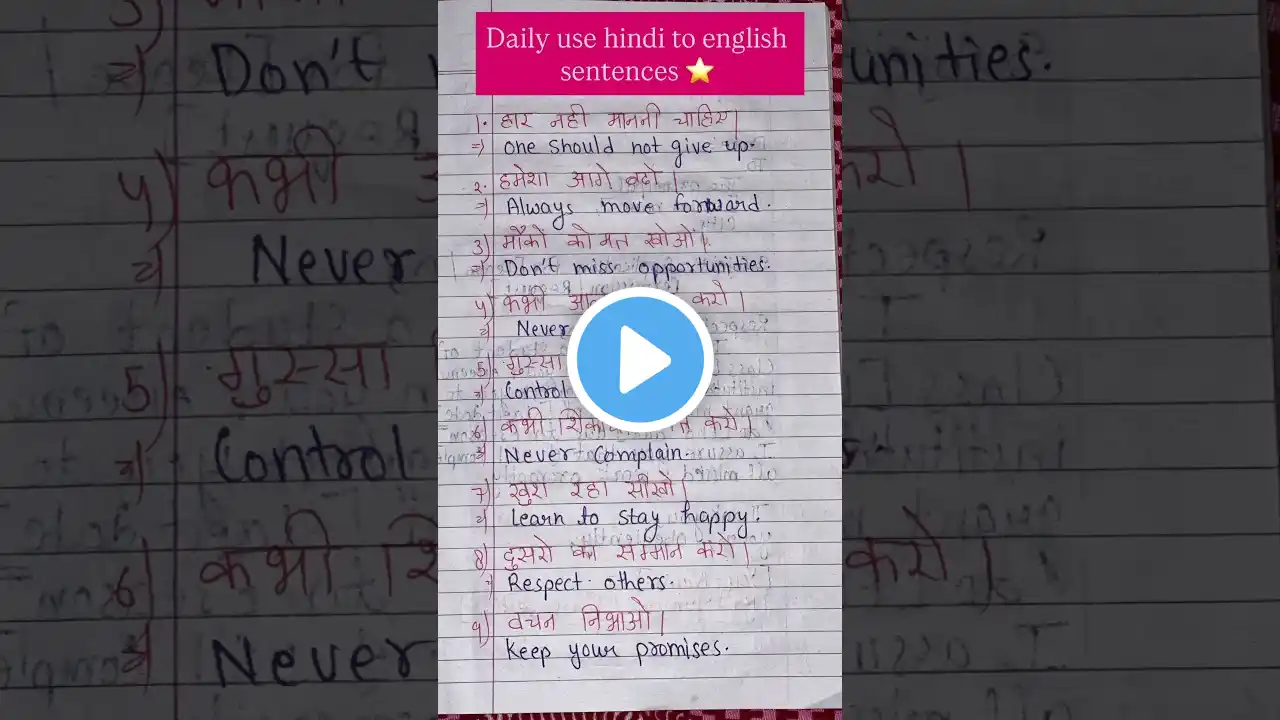 Daily use hindi to english
sentences ⭐
1. हार नही माननी चाहिए।
⇒ one should not give up.
२. हमेशा आगे बढ़ो।
⇒ Always move forward.
3) मौकों को मत खोओ।
⇒ Don't miss opportunities.
4) कभी करो।
⇒ Never
5) गुस्सा
⇒ Control
6) कभी मत करो।
⇒ Never Complain.
7) खुश रहा सीखो।
⇒ Learn to stay happy.
8) दुसरो का सम्मान करो।
⇒ Respect others.
9) वचन निभाओ।
Keep your promises.